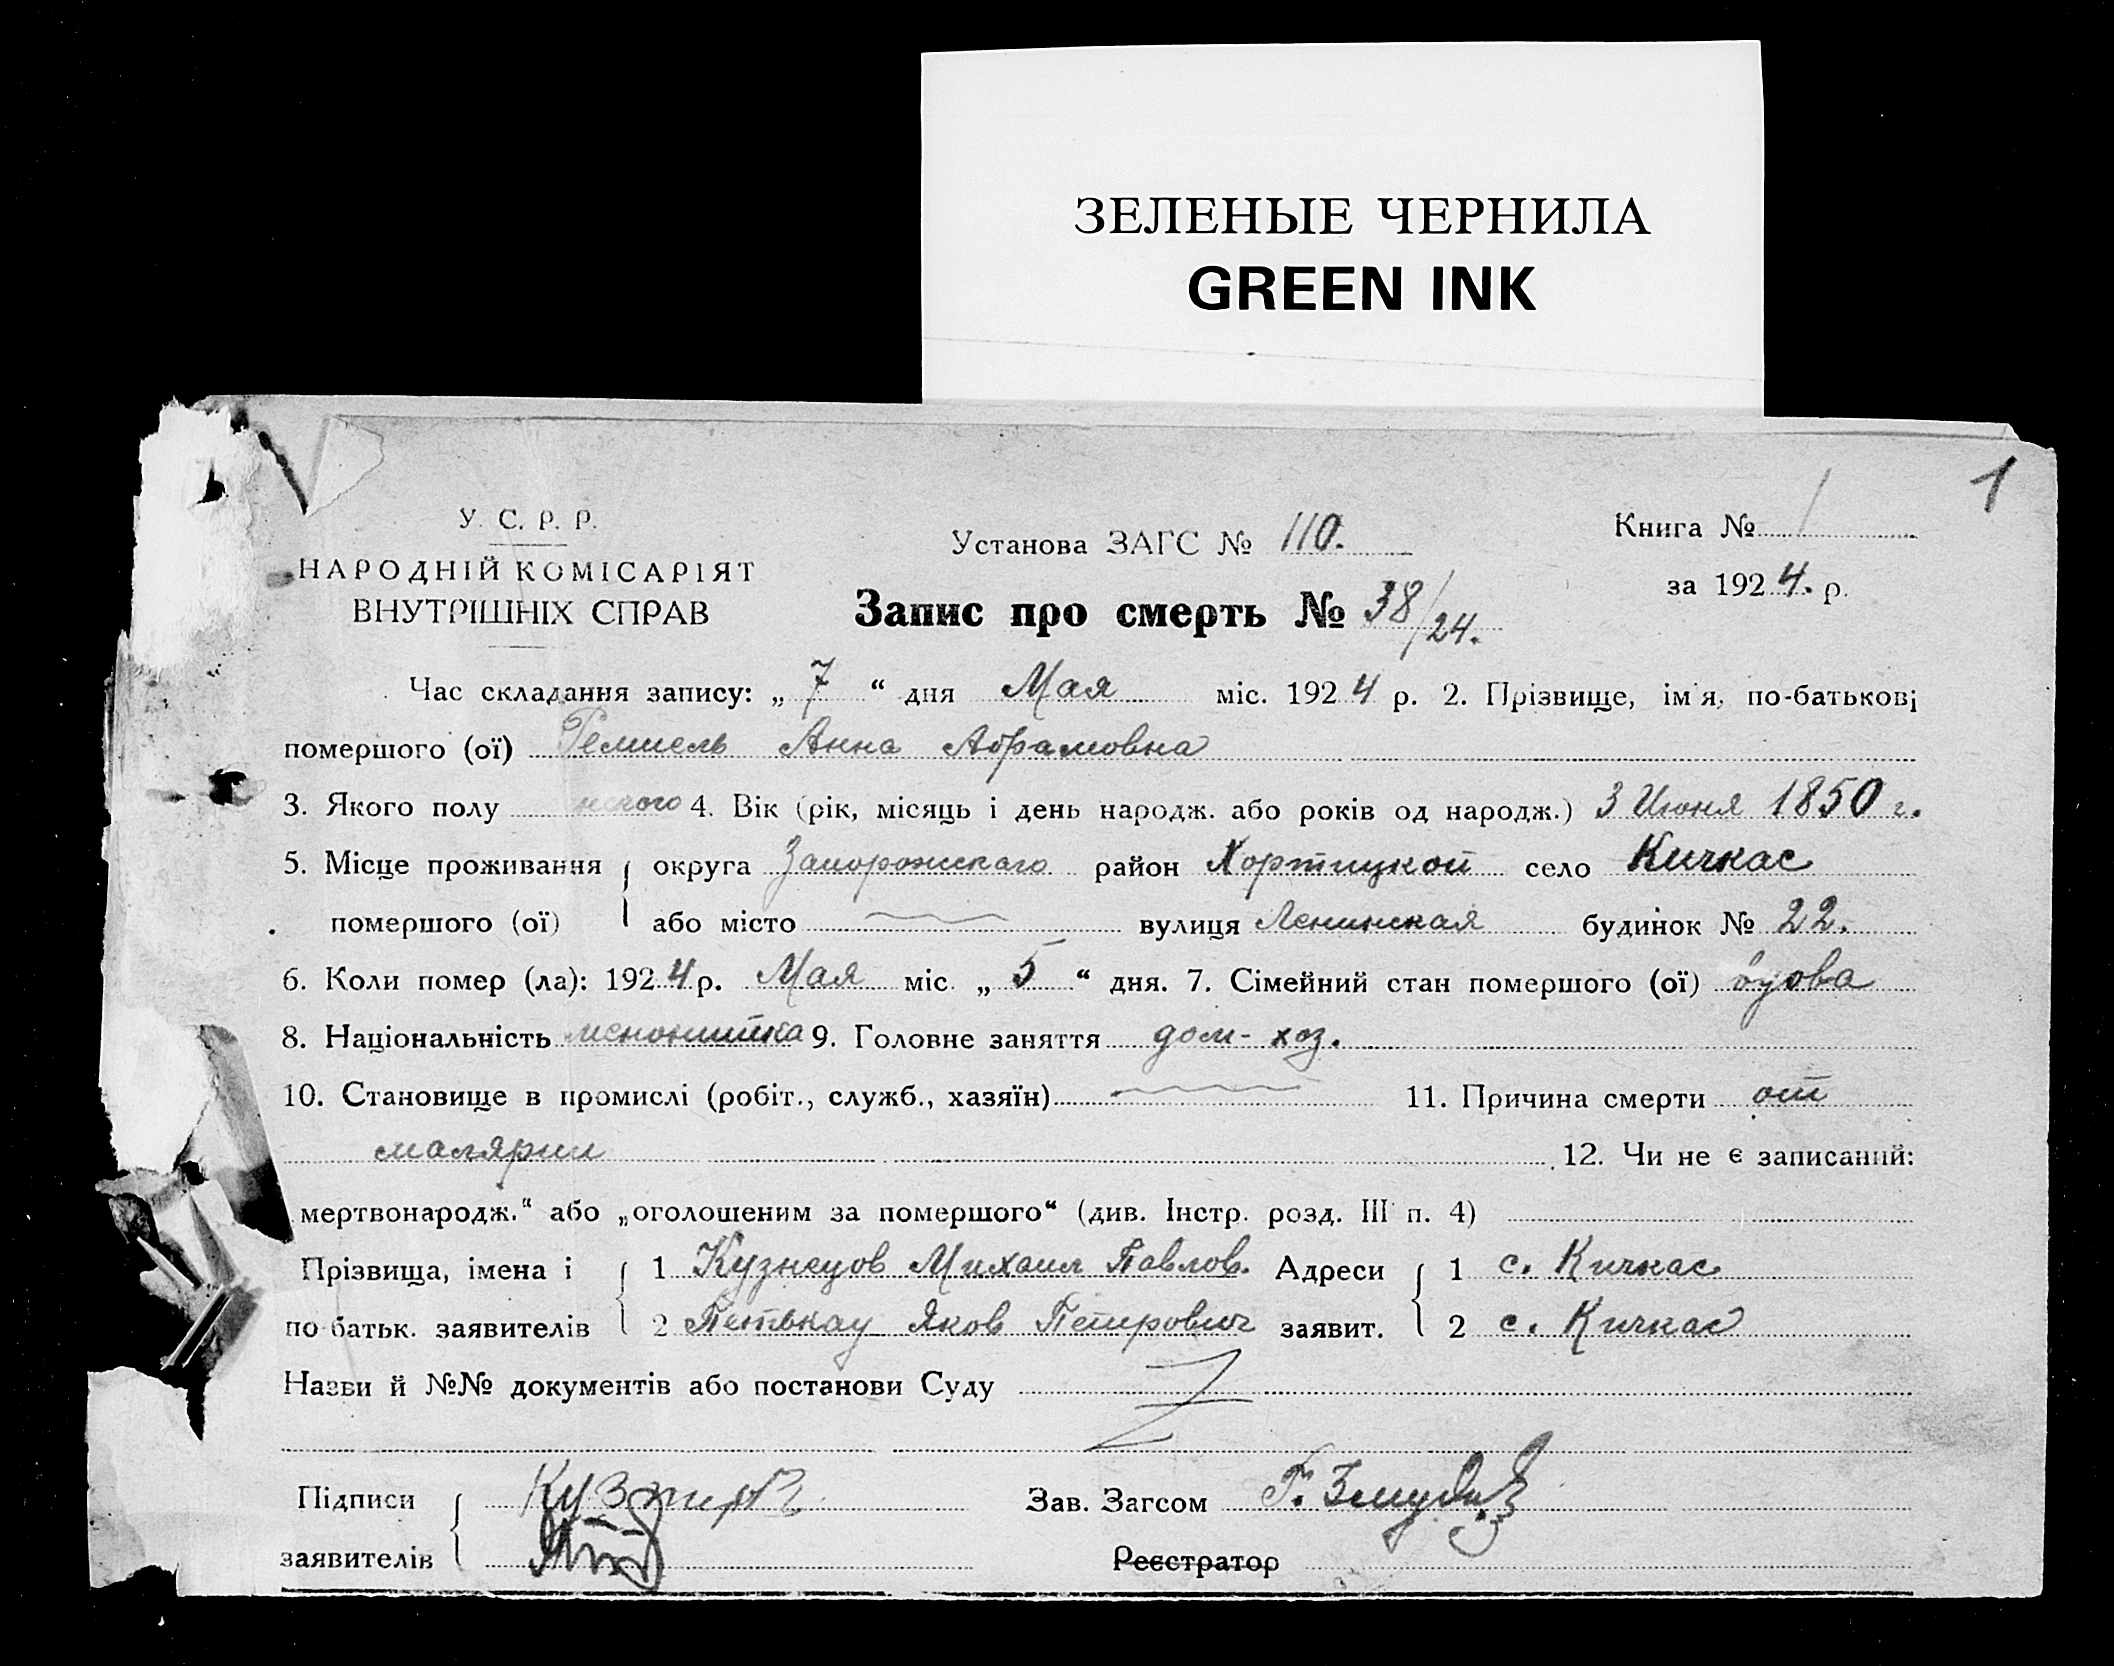 ЗЕЛЕНЫЕ ЧЕРНИЛА
GREEN INK
1
У. С. Р. Р.
НАРОДНІЙ КОМІСАРІЯТ
ВНУТРІШНІХ СПРАВ
Установа ЗАГС № 110.
Книга № 1
за 1924. р.
Запис про смерть № 38/24.
Час складання запису: „ 7 “ дня Мая міс. 1924 р. 2. Прізвище, ім'я, по-батькові
помершого (ої) Анна Абрамовна
3. Якого полу нского 4. Вік (рік, місяць і день народж. або років од народж.) 3 Июня 1850 г.
5. Місце проживання округа Запорожскаго район Хортицкой село Кичкас
помершого (ої) або місто вулиця Ленинская будинок № 22.
6. Коли помер (ла): 1924 р. Мая міс. „ 5 “ дня. 7. Сімейний стан помершого (ої) вдова
8. Національність менонитка 9. Головне заняття дом-хоз.
10. Становище в промислі (робіт., служб., хазяїн) 11. Причина смерти от
малярии 12. Чи не є записаний:
мертвонародж.“ або „оголошеним за помершого“ (див. Інстр. розд. III п. 4)
Прізвища, імена і 1 Кузнецов Михаил Павлов. Адреси 1 с. Кичкас
по батьк. заявителів 2 Петькау Яков Петрович заявит. 2 с. Кичкас
Назви й №№ документів або постанови Суду
Підписи Зав. Загсом
заявителів Реєстратор